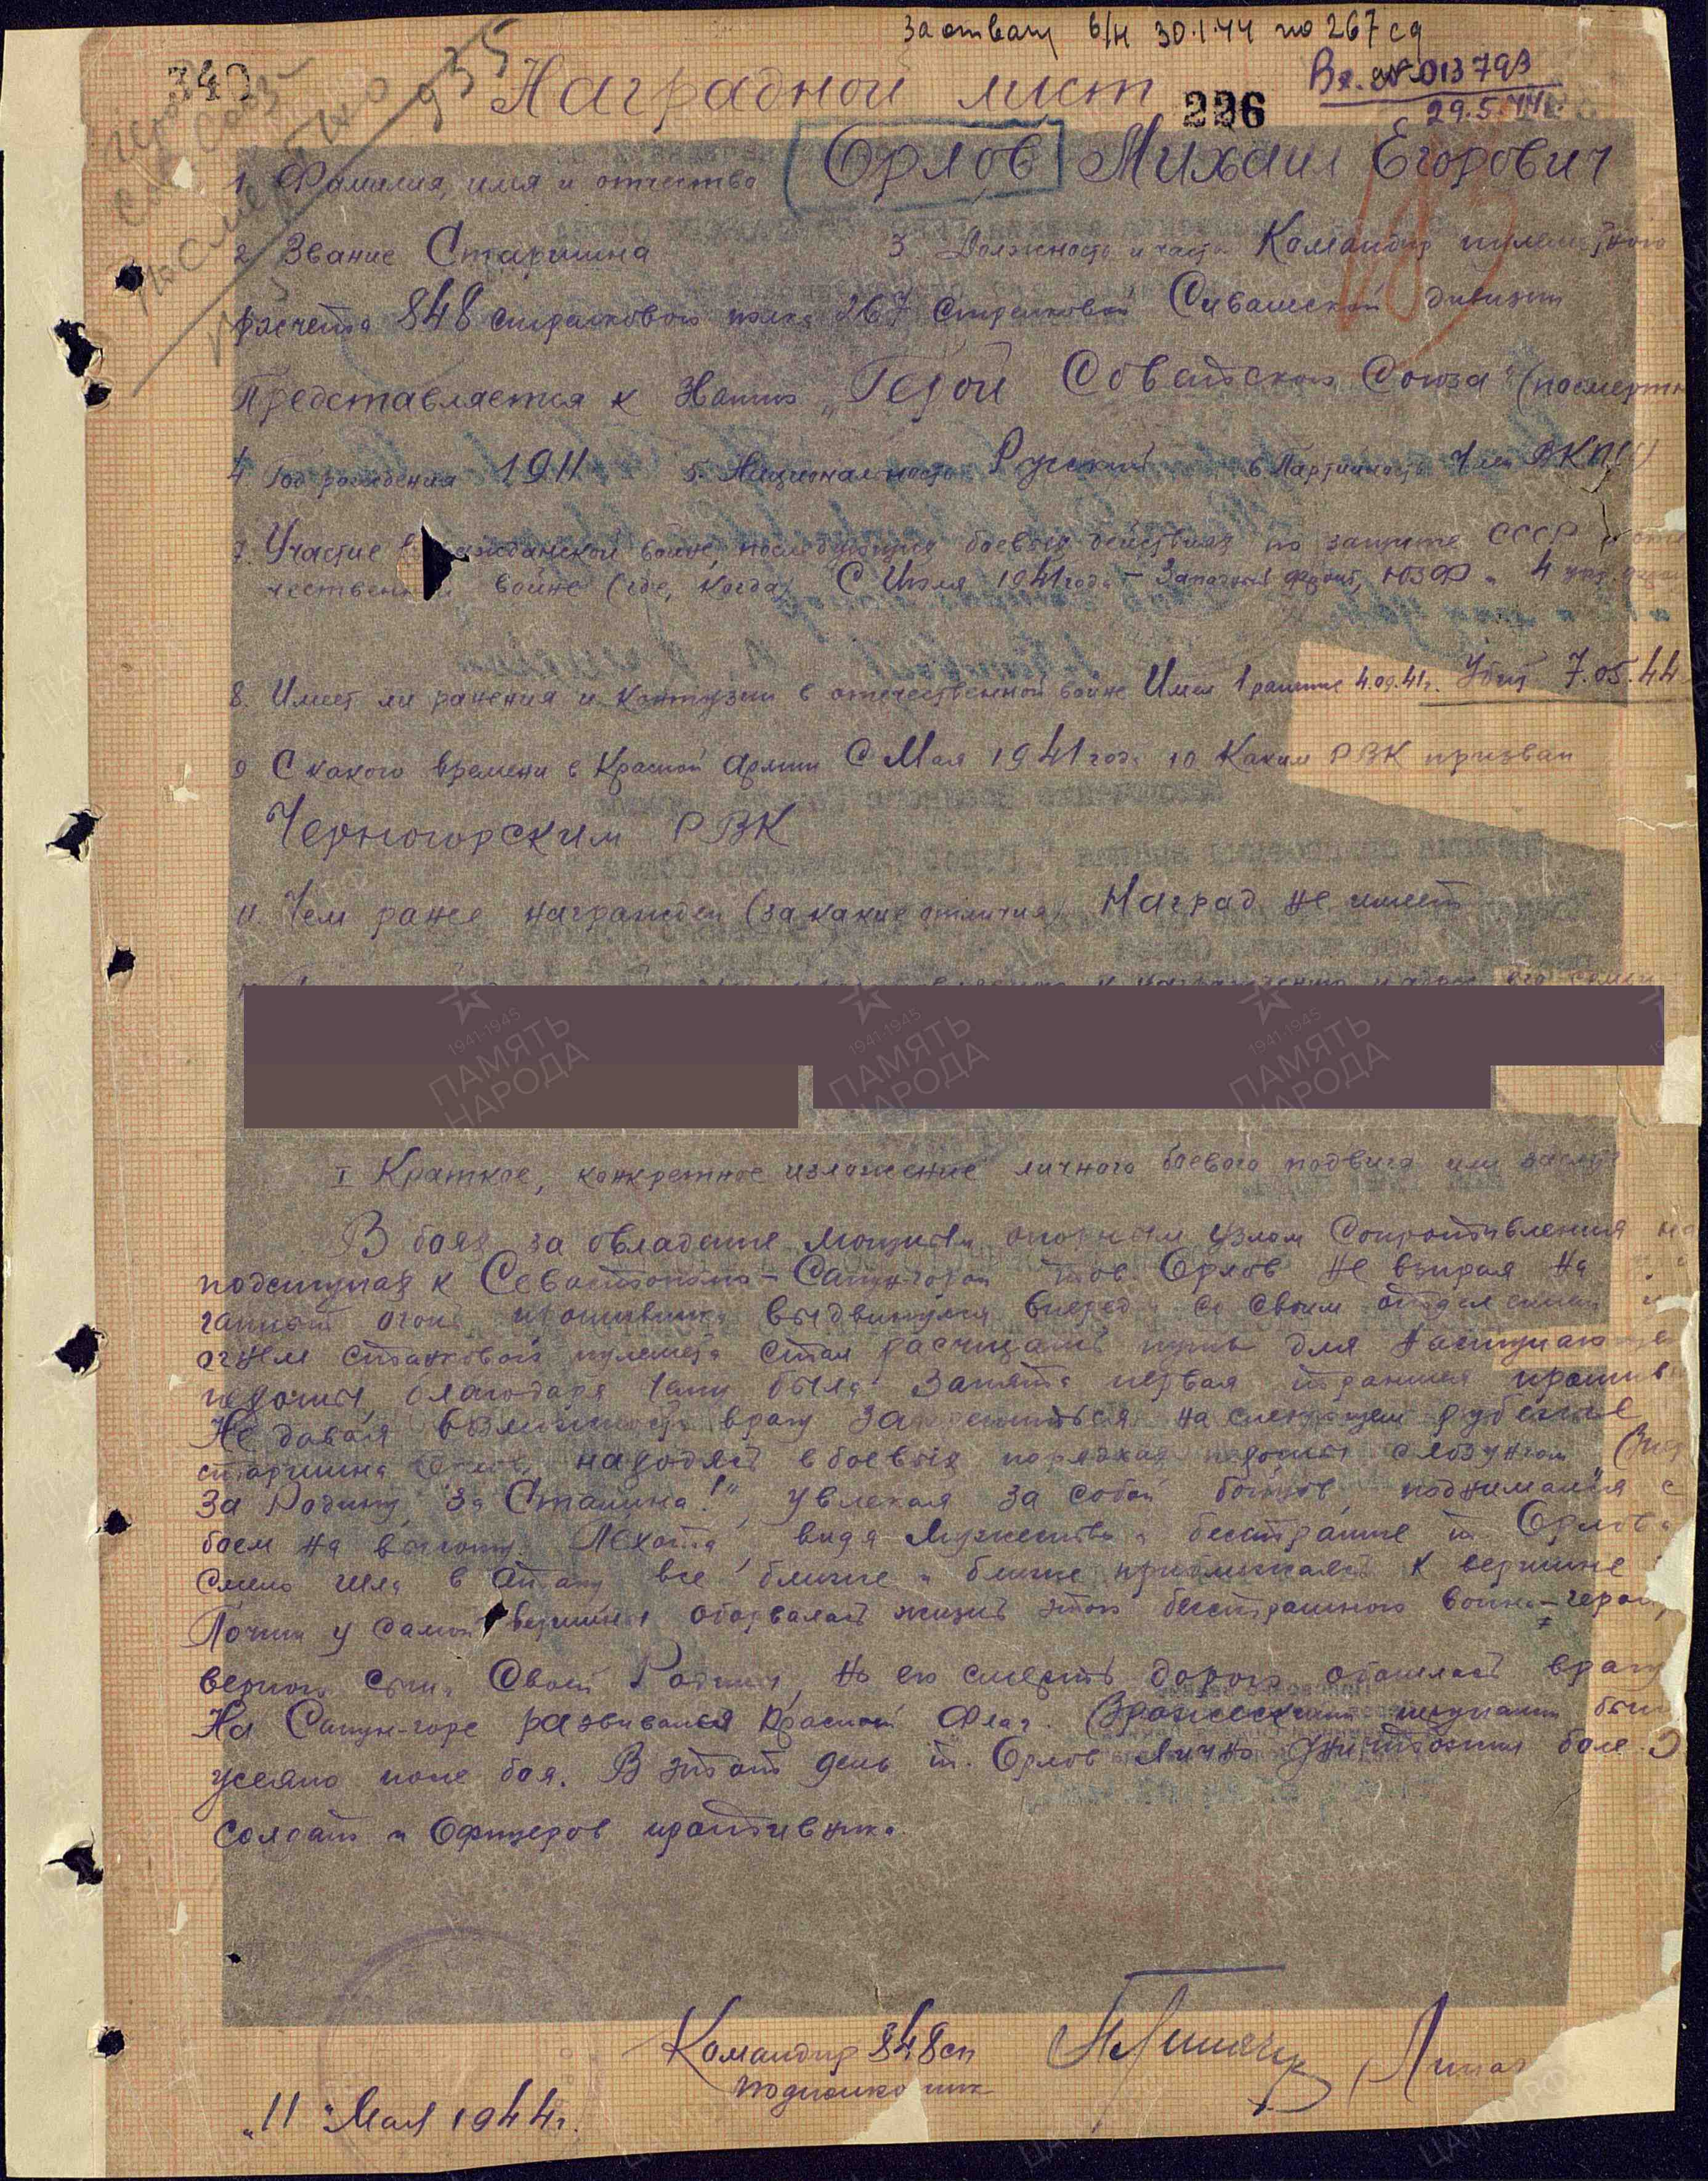 За отвагу б/н 30.1.44 по 267 сд
340
935
Наградной лист
226
Вх. № 013793
29.5.44г.
Герой
Сов. Союз
посмертно
1 Фамилия, имя и отчество Орлов Михаил Егорович
2 Звание Старшина 3. Должность и часть Командир пулеметного
расчета 848 стрелкового полка 267 стрелковой Сивашской дивизии
Представляется к Званию „Герой Советского Союза" (посмертн
4 Год рождения 1911 5. Национальность Русский 6 Партийность Член ВКП(б)
7. Участие в гражданской войне, последующих боевых действиях по защите СССР и оте
чественной войне (где, когда) С Июля 1941 года – Западный фронт, ЮЗФ и 4 укр. фронт
8. Имеет ли ранения и контузии в отечественной войне Имел 1 ранение 4.09.41г. Убит 7.05.44
9 С какого времени в Красной Армии С Мая 1941 года 10 Каким РВК призван
Черногорским РВК
11. Чем ранее награжден (за какие отличия) Наград не имеет
к награждению и адрес его семьи
ПАМЯТЬ НАРОДА
1941-1945
I Краткое, конкретное изложение личного боевого подвига или заслуг
В боях за овладение мощным опорным узлом Сопротивления на
подступах к Севастополю – Сапун-горой тов. Орлов не взирая на
огонь противника выдвинулся вперед со своим отделением и
огнем станкового пулемета стал расчищать путь для наступающей
пехоты, благодаря чему была занята первая траншея против
Не давая возможности врагу закрепиться на следующем рубеже
старшина Орлов, находясь в боевых порядках пехоты с лозунгом
За Родину, за Сталина!", увлекая за собой бойцов, поднимался с
боем на высоту. Пехота, видя мужество и бесстрашие т. Орлова
смело шла в атаку все ближе и ближе приближаясь к вершине
Почти у самой вершины оборвалась жизнь этого бесстрашного воина-героя,
верного сына Своей Родины, но его смерть дорого обошлась врагу
На Сапун-горе развивался Красный Флаг. Вражескими трупами было
усеяно поле боя. В этот день т. Орлов лично уничтожил более
солдат и офицеров противника.
Командир 848 сп
подполковник
„11" Мая 1944г.